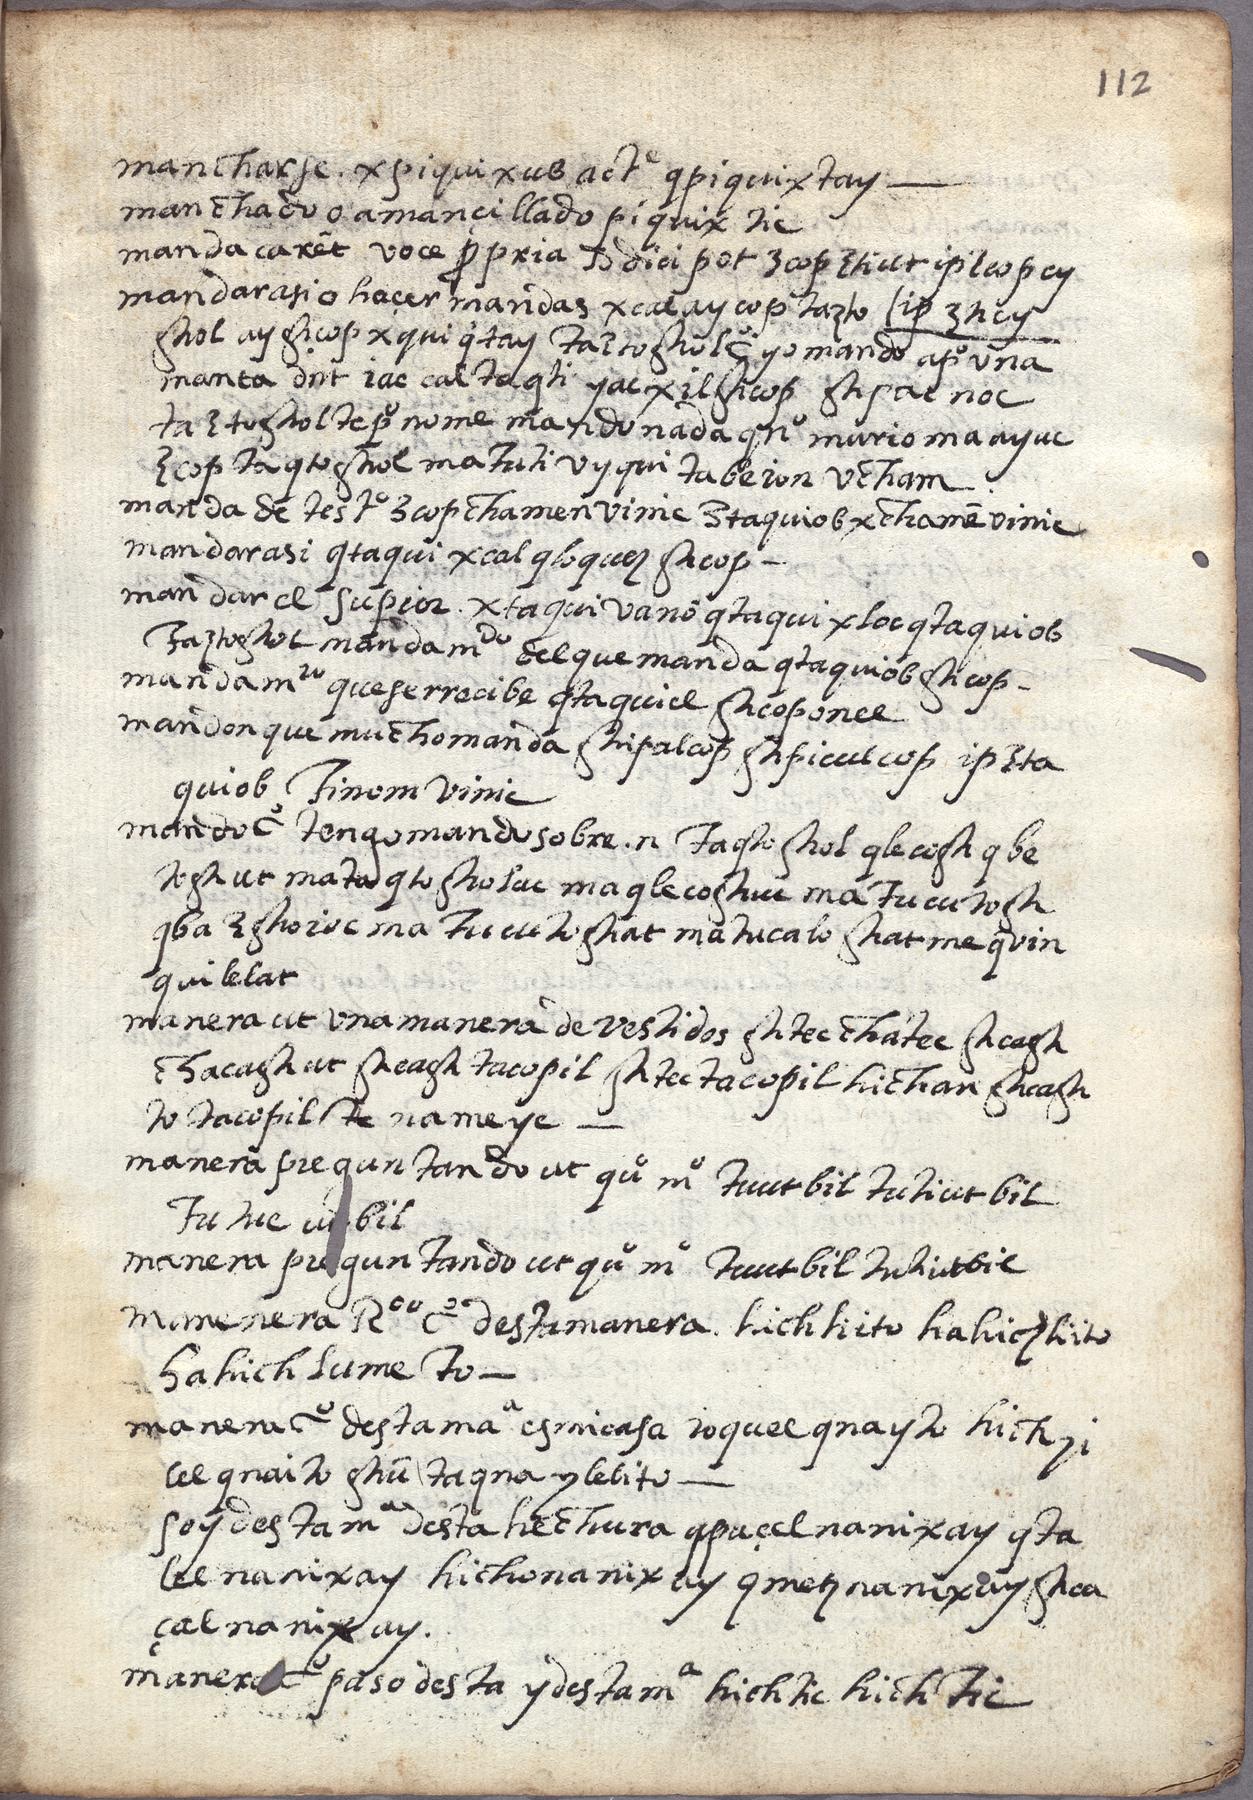 112
mancharse. xpiqui xub act.e qpiquixtay
manchado o amançillado piquix tic
manda carēt voce ꝓpria dici pot ꜫcop ꜫtiut ipꜫcop cy
mandar asi o haçer mandas xcal ay cop taꜫto (ip ꜫhcy
ghol ay ghcop xqui qtay taꜫtoghol c.o yo mando apo vna
manta dnt iac cal taqti yac xil ghcop gh sac noc
taꜫtogholte po nome mando nada qno murio ma ayuc
ꜫcop taqtoghol ma tuti vyqui tabeion vcham
manda de testo ꜫcop chamen vinic ꜫtaquiob xchamē vinic
mandar asi qtaqui xcal qloquoꜫ ghcop
mandar el superior. xtaqui vano qtaqui xloc qtaquiob
taꜫtoghol mandamto del que manda qtaquiob ghcop
mandamto que se rrecibe qtaquiel ghcoponel
mandon que mucho manda ghpalcop ghpiculcop ip ꜫta
quiob tinom vinic
mando c.o tengo mando sobre .n. taqtoghol qlecogh qbe
togh ut mataqtogholuc maqlecoghuc ma tucutogh
qba ꜫghoiuc ma tucutoghat ma tucalo ghat me quin
quilelat
manera ut vna manera de vestidos ghtec chatec ghcagh
chacagh ut ghcagh tacopil ghtec tacopil hichan ghcagh
to tacopil te name ye
manera preguntando ut quo mo tuutbil tutiutbil
tutuc utbil
manera preguntando ut quo mo tuutbil tutiutbil
manenera Roo c.o desta manera. hichhito hahichhito
hahich lume to
manera c.o desta maa es mi casa ioquel qnayto hich yi
lel qnaito ghū taqna ylelito
soy desta ma desta hechura qpaçel nanixay qta
lel nanixay hichonanixay qmeꜫ nanixay ghca
çal nanixay.
manera c.o paso desta y desta ma hichtic hichtic